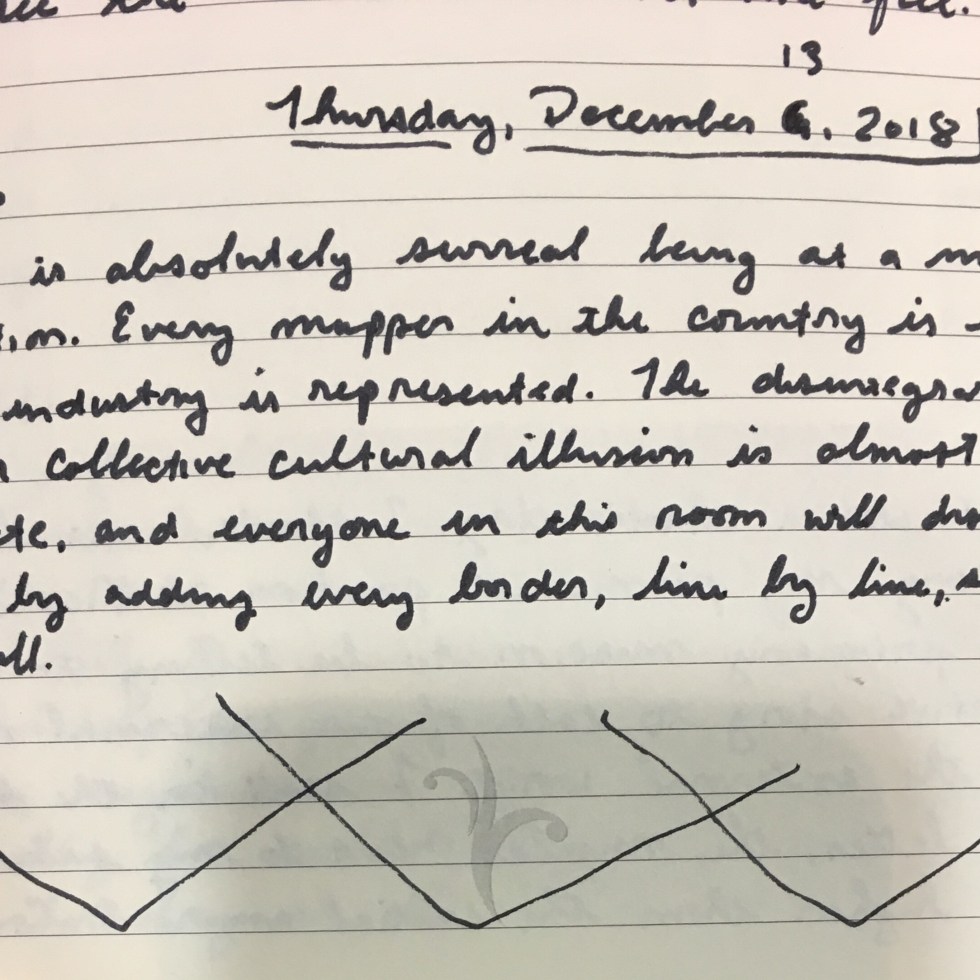 13
Thursday, December 6, 2018
is absolutely surreal being at a m
Every mapper in the country is
industry is represented. The disintegrat
collective cultural illusion is almost
and everyone in this room will dra
by adding every border, line by line,